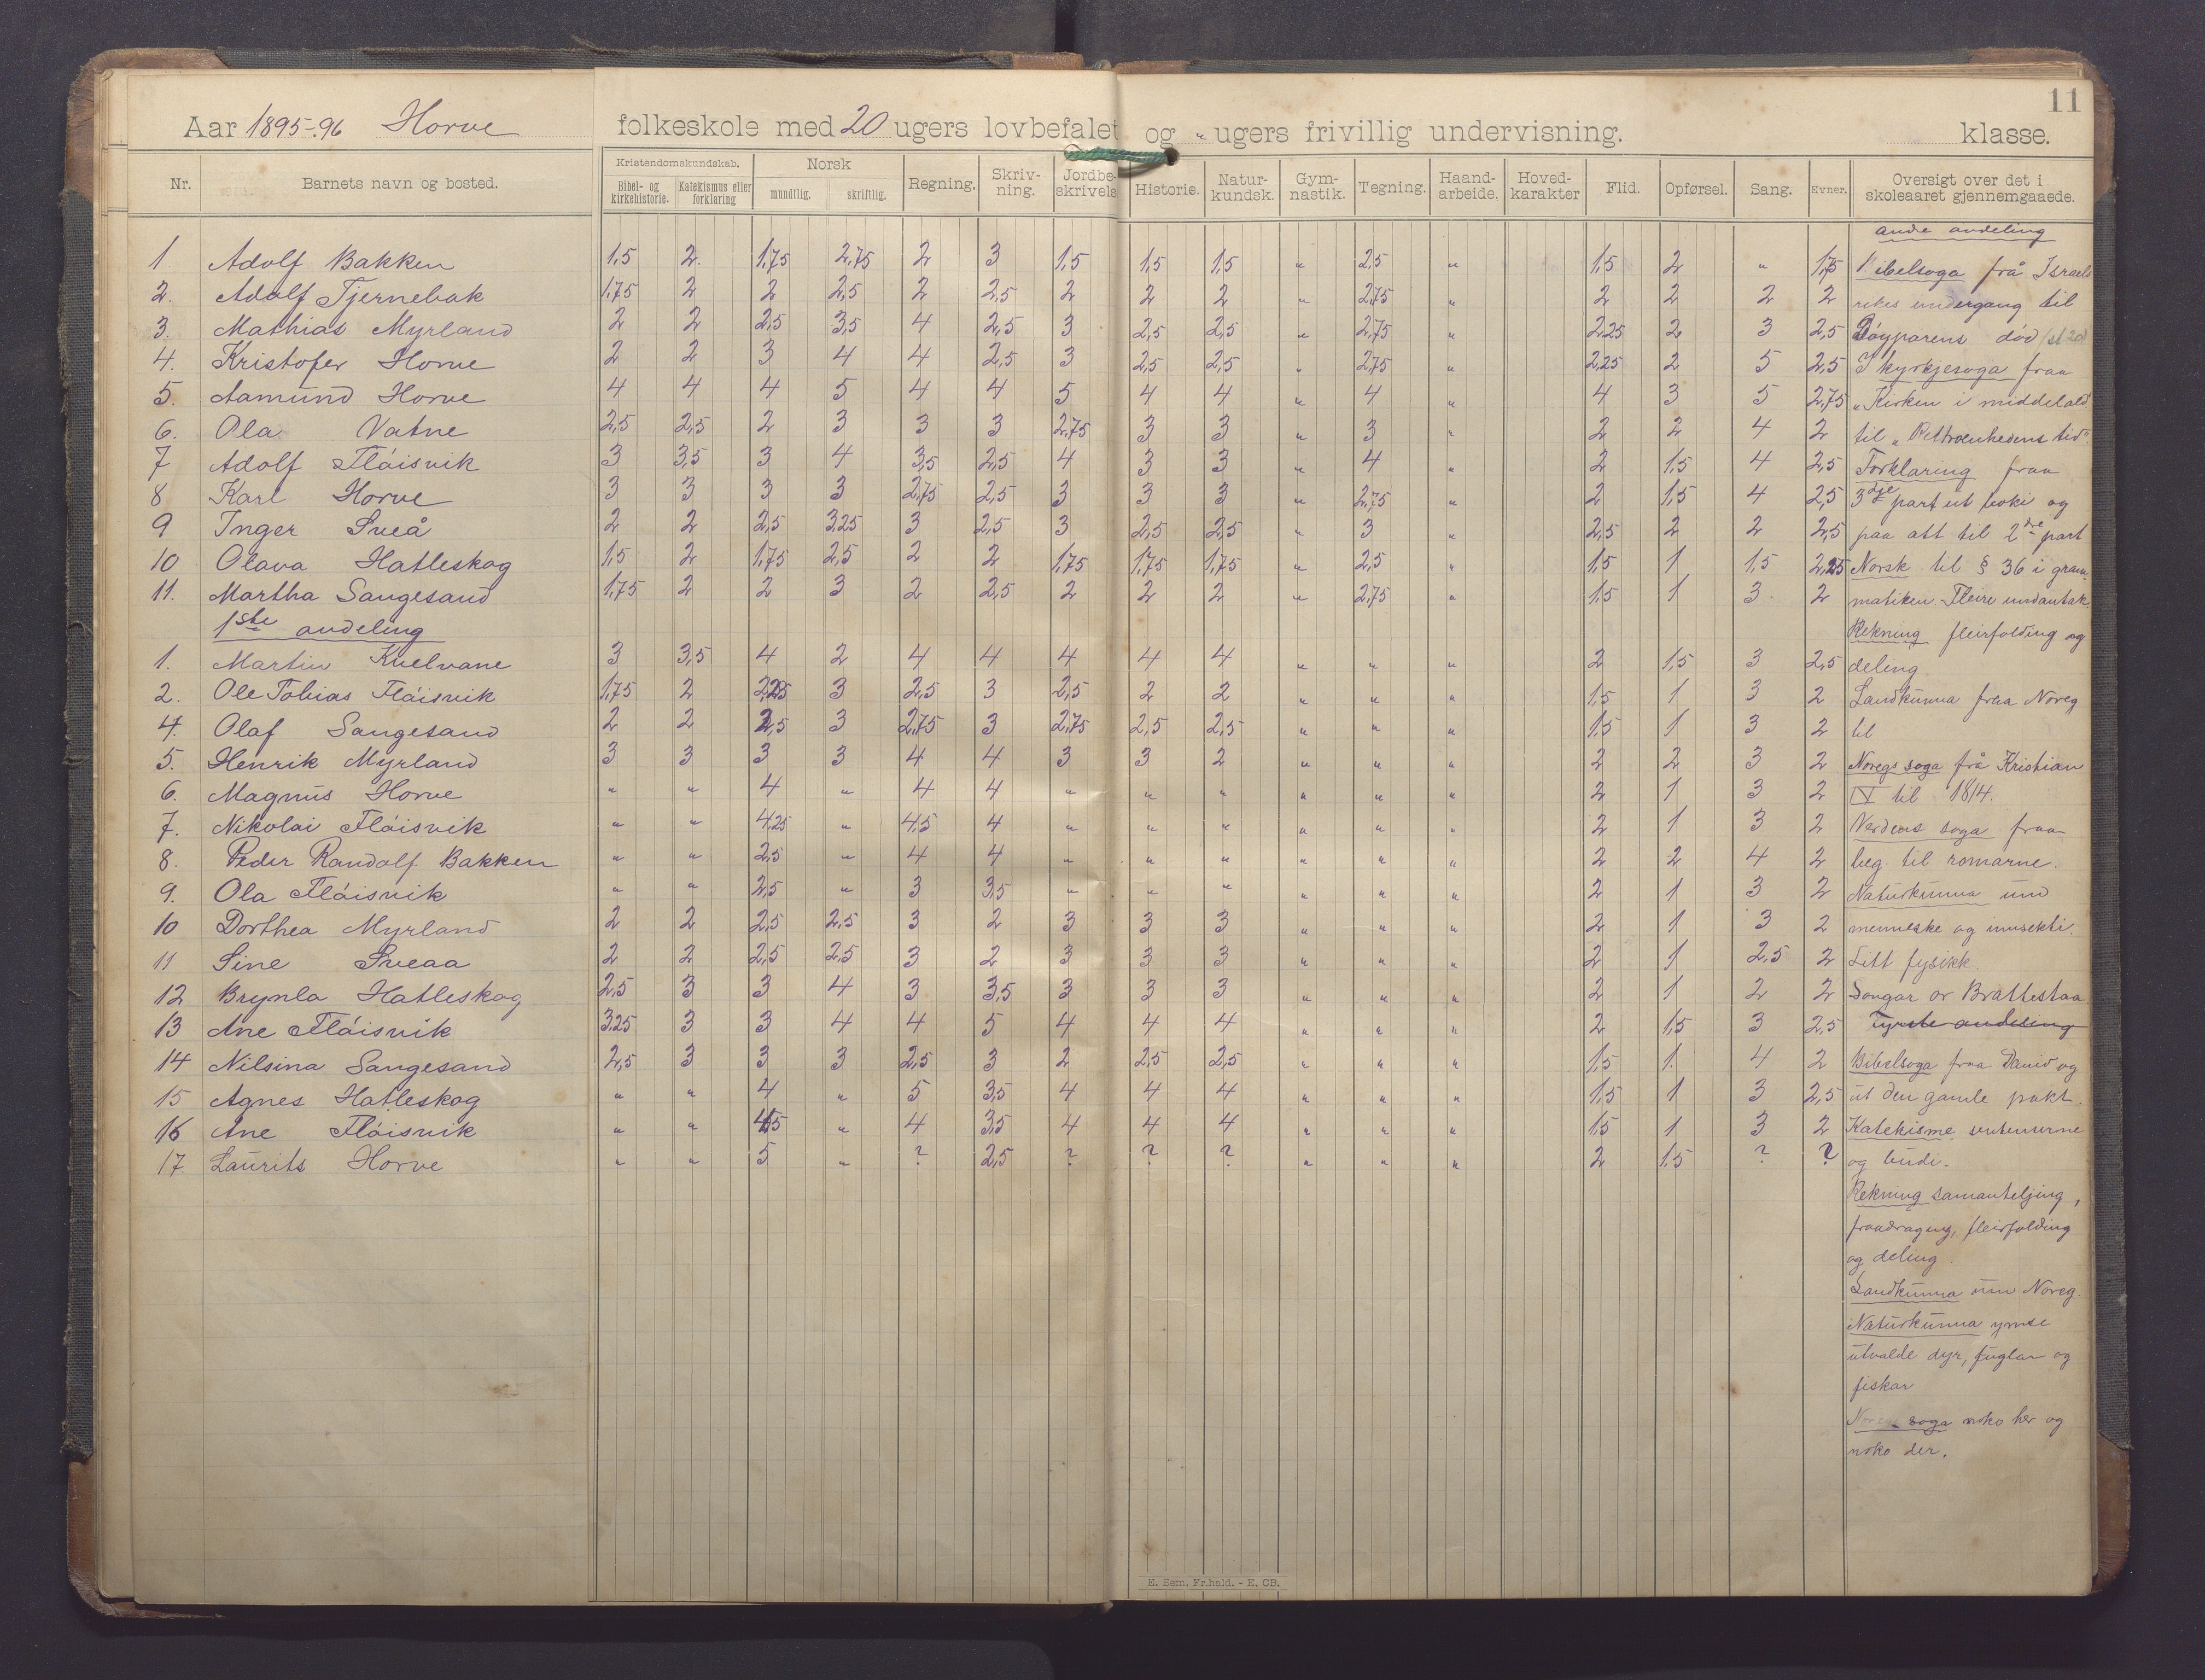 11
Aar 1895-96 Horve folkeskole med 20 ugers lovbefalet og " ugers frivillig undervisning. klasse.
Nr. Barnets navn og bosted. Kristendomskundskab. Bibel- og kirkehistorie. Katekismus eller forklaring Norsk mundtlig. skriftlig. Regning. Skriv-ning. Jordbe-skrivelse Historie. Natur-kundsk. Gym-nastik. Tegning. Haand-arbeide. Hoved-karakter Flid. Opførsel. Sang. Evner. Oversigt over det i skoleaaret gjennemgaaede.
1 Adolf Bakken 1,5 2. 1,75 2,75 2 3 1,5 1,5 1,5 " 2,5 " 1,5 2 " 1,75
2. Adolf Tjernebak 1,75 2 2 2,5 2 2,5 2 2 2 " 2,75 " 2 2 2 2
3. Mathias Myrland 2 2 2,5 3,5 4 2,5 3 2,5 2,5 " 2,75 " 2,25 2 3 2,5
4. Kristofer Horve 2 2 3 4 4 2,5 3 2,5 2,5 " 2,75 " 2,25 2 5 2,5
5. Aamund Horve 4 4 4 5 4 4 5 4 4 " 4 " 4 3 5 2,75
6. Ola Vatne 2,5 2,5 2 3 3 3 2,75 3 3 " 3 " 2 2 4 2
7 Adolf Fløisvik 3 3,5 3 4 3,5 2,5 4 3 3 " 4 " 2 1,5 4 2,5
8 Karl Horve 3 3 3 3 2,75 2,5 3 3 3 " 2,75 " 2 1,5 4 2,5
9 Inger Sveå 2 2 2,5 3,25 3 2,5 3 2,5 2,5 " 3 " 2,5 2 2 2,5
10 Olava Hatleskog 1,5 2 1,75 2,5 2 2 1,75 1,75 1,75 " 2,5 " 1,5 1 1,5 2,25
11. Martha Sangesand 1,75 2 2 3 2 2,5 2 2 2 " 2,75 " 1,5 1 3 2
1ste andeling
1. Martin Kvelvane 3 3,5 4 2 4 4 4 4 4 " " " 2 1,5 3 2,5
2. Ole Tobias Fløisvik 1,75 2 2,25 3 2,5 3 2,5 2 2 " " " 1,5 1 3 2
4. Olaf Sangesand 2 2 2,5 3 2,75 3 2,75 2,5 2,5 " " " 1,5 1 3 2
5. Henrik Myrland 3 3 3 3 4 4 3 3 2 " " " 2 2 3 2
6. Magnus Horve " " 4 " 4 4 " " " " " " 2 1 3 2
7. Nikolai Fløisvik " " 4,25 " 4,5 4 " " " " " " 2 1 3 2
8. Peder Randolf Bakken " " 2,5 " 4 4 " " " " " " 2 2 4 2
9. Ola Fløisvik " " 2,5 " 3 3,5 " " " " " " 2 1 3 2
10 Dorthea Myrland 2 2 2,5 2,5 3 2 3 3 3 " " " 2 1 3 2
11 Sine Sveaa 2 2 2,5 2,5 3 2 3 3 3 " " " 2 1 2,5 2
12 Brynla Hatleskog 2,5 3 3 4 3 3,5 3 3 3 " " " 2 1 2 2
13 Ane Fløisvik 3,25 3 3 4 4 5 4 4 4 " " " 2 1,5 3 2,5
14 Nilsina Sangesand 2,5 3 3 3 2,5 3 2 2,5 2,5 " " " 1,5 1. 4 2
15 Agnes Hatleskog " " 4 " 5 3,5 4 4 4 " " " 1,5 1 3 2,5
16 Ane Fløisvik " " 4,5 " 4 3,5 4 4 4 " " " 1,5 1 3 2
17 Laurits Horve " " 5 " ? 2,5 ? ? ? " " " 2 1,5 ? ?
Andre andeling
Bibelsoga frå Israels
rikes undergang til
Døyparens død
I kyrkjesoga fraa
"Kirken i middelald.
til "Rettroenhedens tid".
Forklaring fraa
3dje part ut boki og
paa att til 2dre part
Norsk til § 36 i gram-
matiken. Fleire undantak.
Rekning fleirfolding og
deling
Landkunna fraa Noreg
til
Noregs soga frå Kristian
IV til 1814.
Verdens soga fraa
beg. til romarne.
Naturkunna um
menneske og insekti.
Litt fysikk
Songar or Brattestaa
Fyrste andeling
Bibelsoga fraa David og
ut den gamle pakt.
Katekisme
og budi.
Rekning samanteljing,
fraadraging, fleirfolding
og deling
Landkunna um Noreg.
Naturkunna ymse
utvalde dyr, fuglar og
fiskar
Noregs soga noko her og
noko der.
E. Sem. Fr.hald. - E. CB.